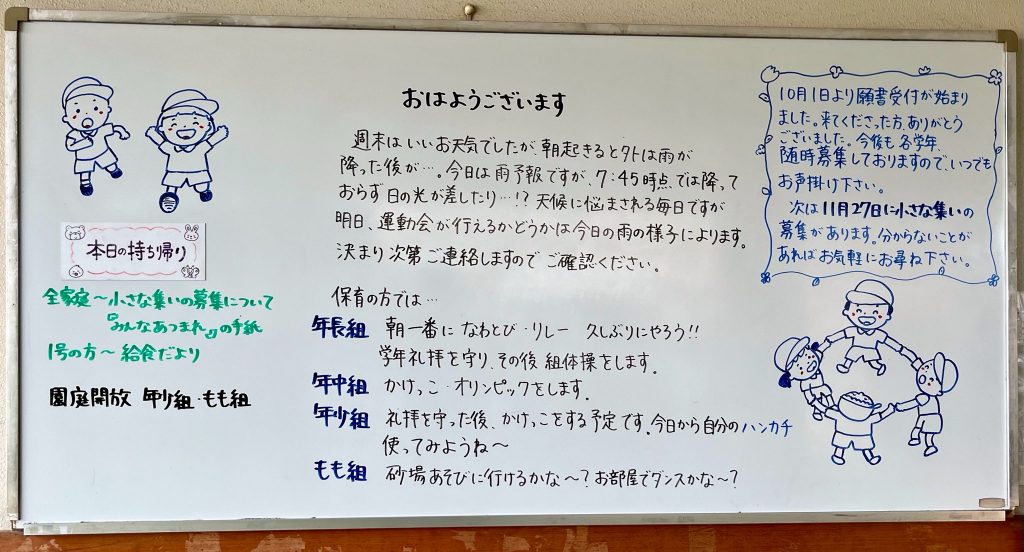 おはようございます
週末はいいお天気でしたが、朝起きると外は雨が
降った後が…。今日は雨予報ですが、7:45時点では降って
おらず日の光が差したり…!? 天候に悩まされる毎日ですが
明日、運動会が行えるかどうかは今日の雨の様子によります。
決まり次第ご連絡しますのでご確認ください。
保育の方では…
年長組 朝一番に なわとび・リレー 久しぶりにやろう!!
学年礼拝を守り、その後 組体操をします。
年中組 かけっこ・オリンピックをします。
年少組 礼拝を守った後、かけっこをする予定です。今日から自分のハンカチ
使ってみようね〜
もも組 砂場あそびに行けるかな〜? お部屋でダンスかな〜?
本日の持ち帰り
全家庭〜小さな集いの募集について
『みんなあつまれ』の手紙
1号の方〜給食だより
園庭開放 年少組・もも組
10月1日より願書受付が始まり
ました。来てくださった方、ありがとう
ございました。今後も各学年、
随時募集しておりますので、いつでも
お声掛け下さい。
次は11月27日に小さな集いの
募集があります。分からないことが
あればお気軽にお尋ね下さい。